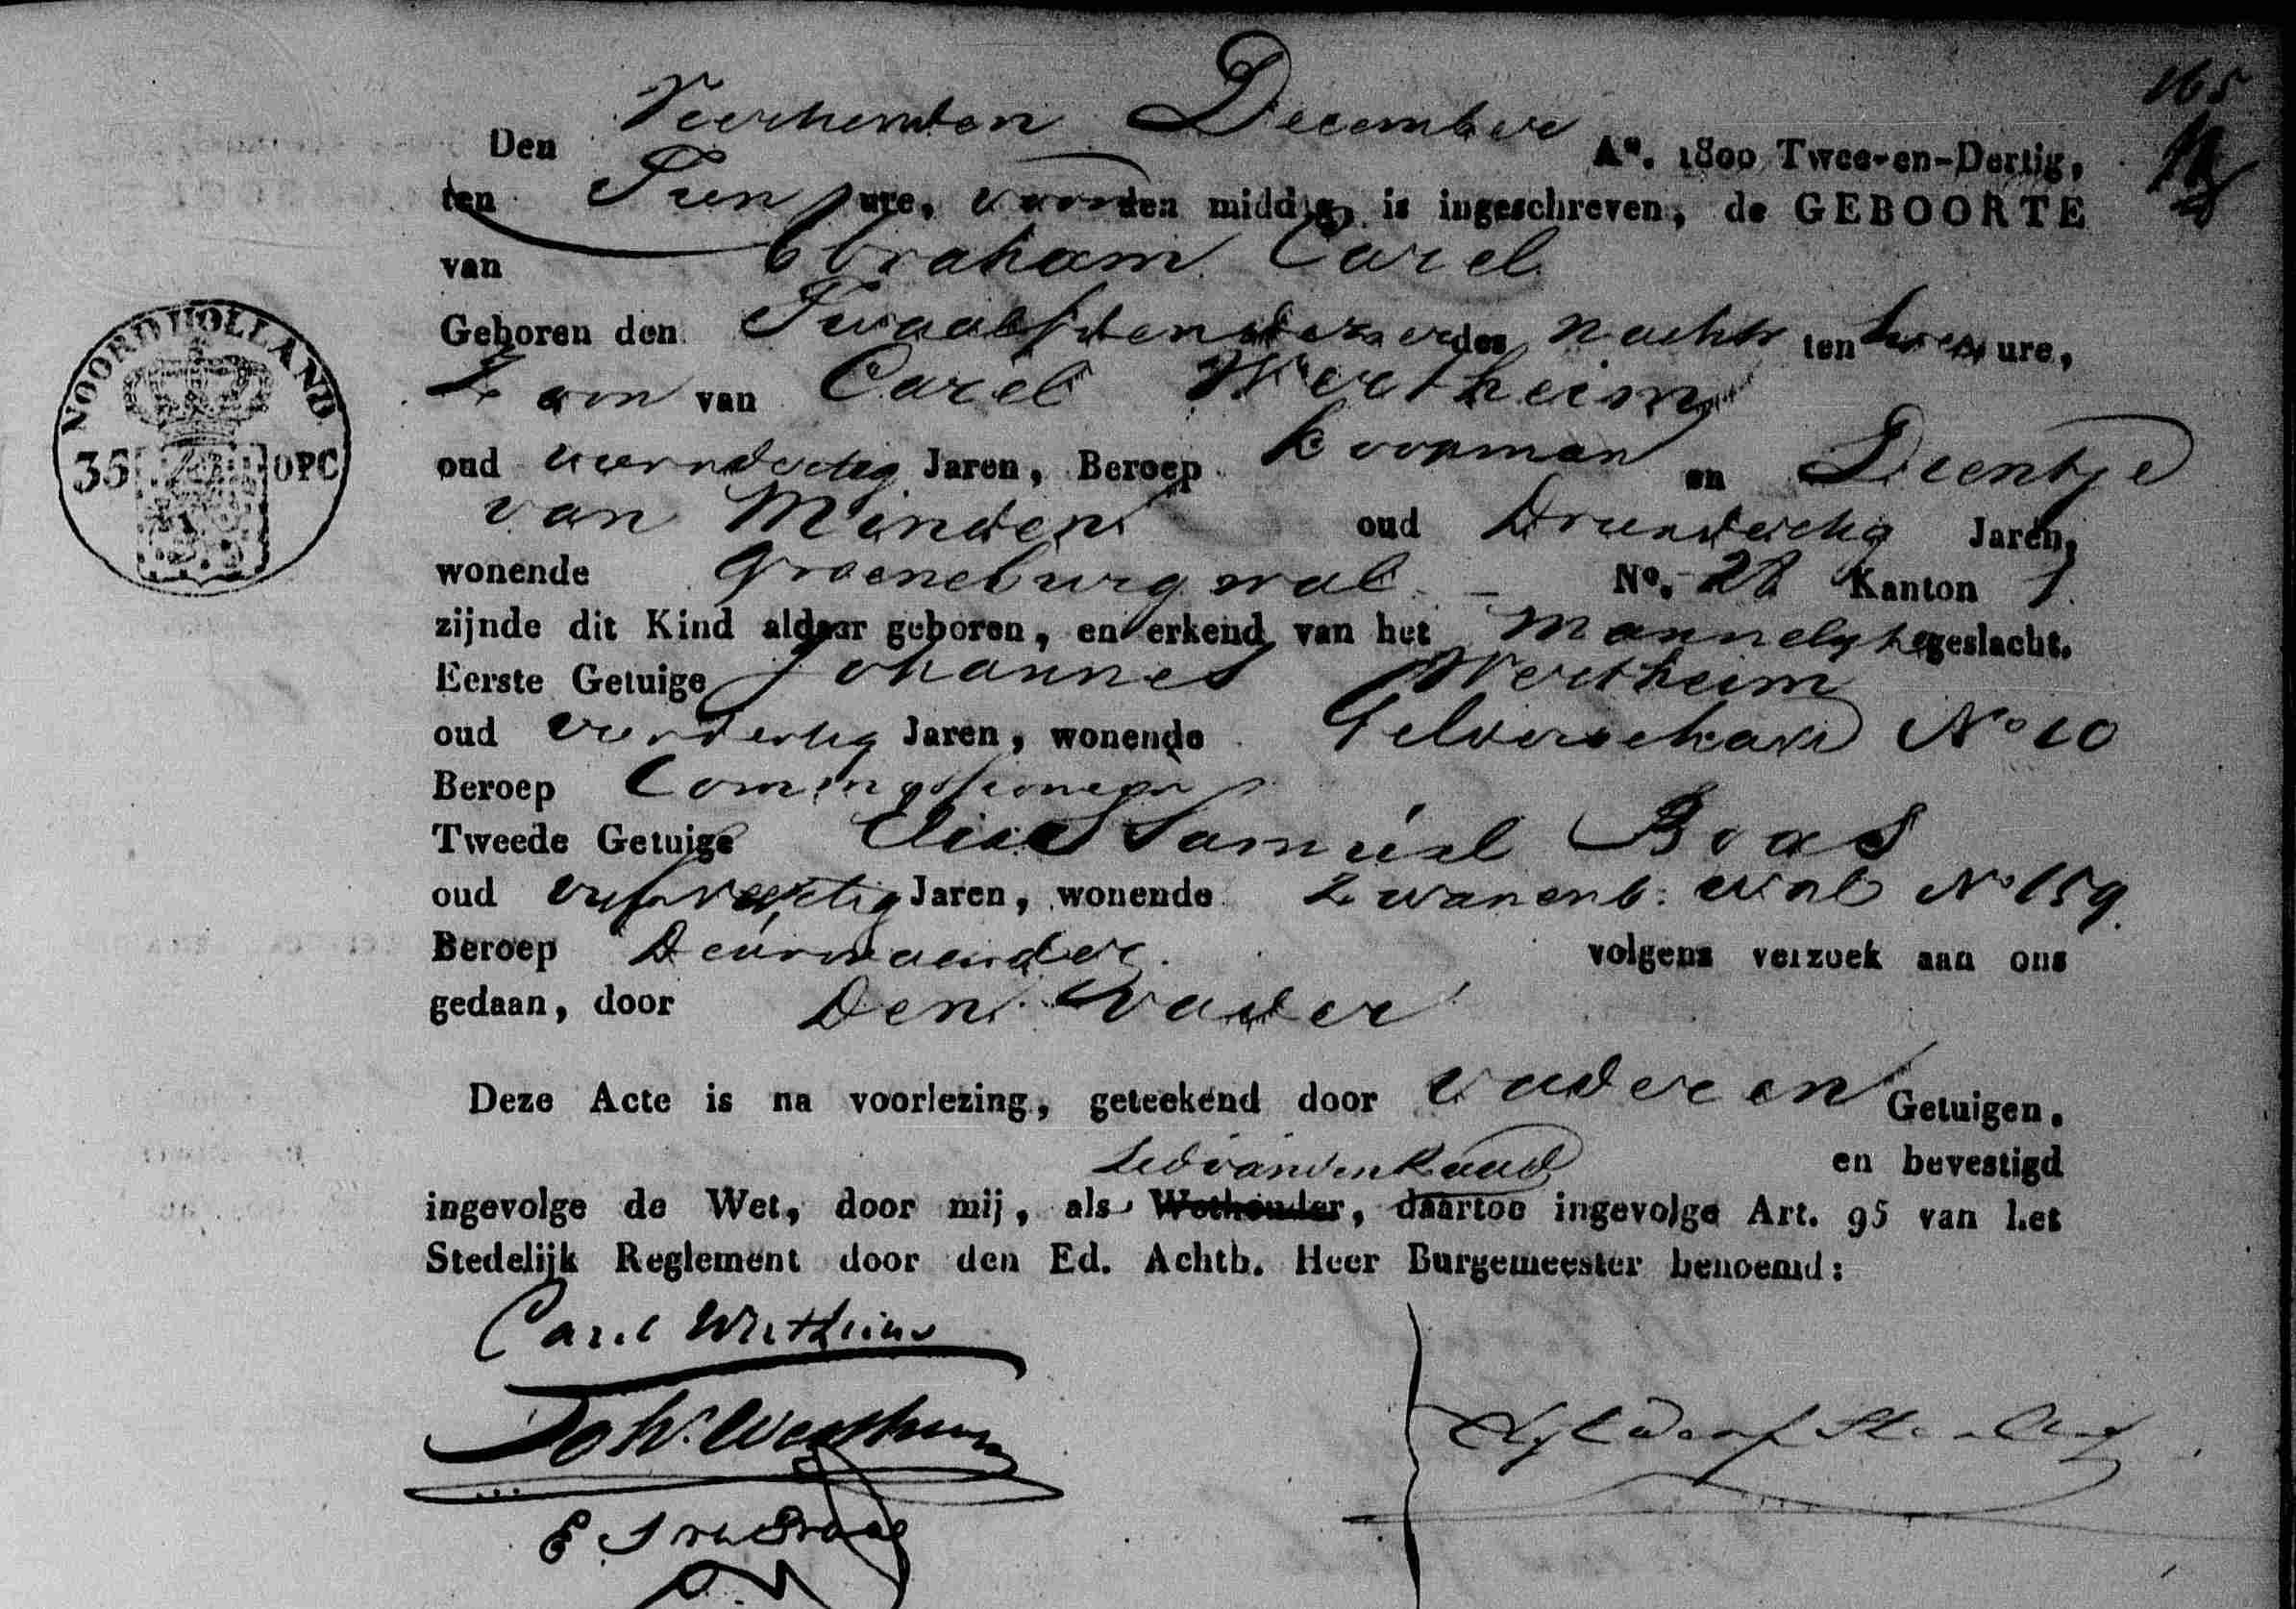 165
Den Veertienden December Aº. 1800 Twee-en-Dertig,
ten Tien ure, voor den middag, is ingeschreven, de GEBOORTE
van Abraham Carel
Geboren den Twaalfden dezer des Nachts ten twee ure,
Zoon van Carel Wertheim
oud vierendertig Jaren, Beroep Koopman en Deentje
van Minden oud Drieendertig Jaren,
wonende Groeneburgwal Nº. 22 Kanton 1
zijnde dit Kind aldaar geboren, en erkend van het Mannelyke geslacht.
Eerste Getuige Johannes Wertheim
oud vierdertig Jaren, wonende Gelderschekade Nº 10
Beroep Commissionair
Tweede Getuige Elias Samuel Boas
oud vijfenveertig Jaren, wonende Zwanenb: wal Nº 159
Beroep Deurwaarder. volgens verzoek aan ons
gedaan, door Den Vader
Deze Acte is na voorlezing, geteekend door vader en Getuigen,
Lid van den Raad en bevestigd
ingevolge de Wet, door mij, als Wethouder, daartoe ingevolge Art. 95 van het
Stedelijk Reglement door den Ed. Achtb. Heer Burgemeester benoemd:
NOORD HOLLAND
35 OPC
Carel Wertheim
Joh. Wertheim
E. S Boas